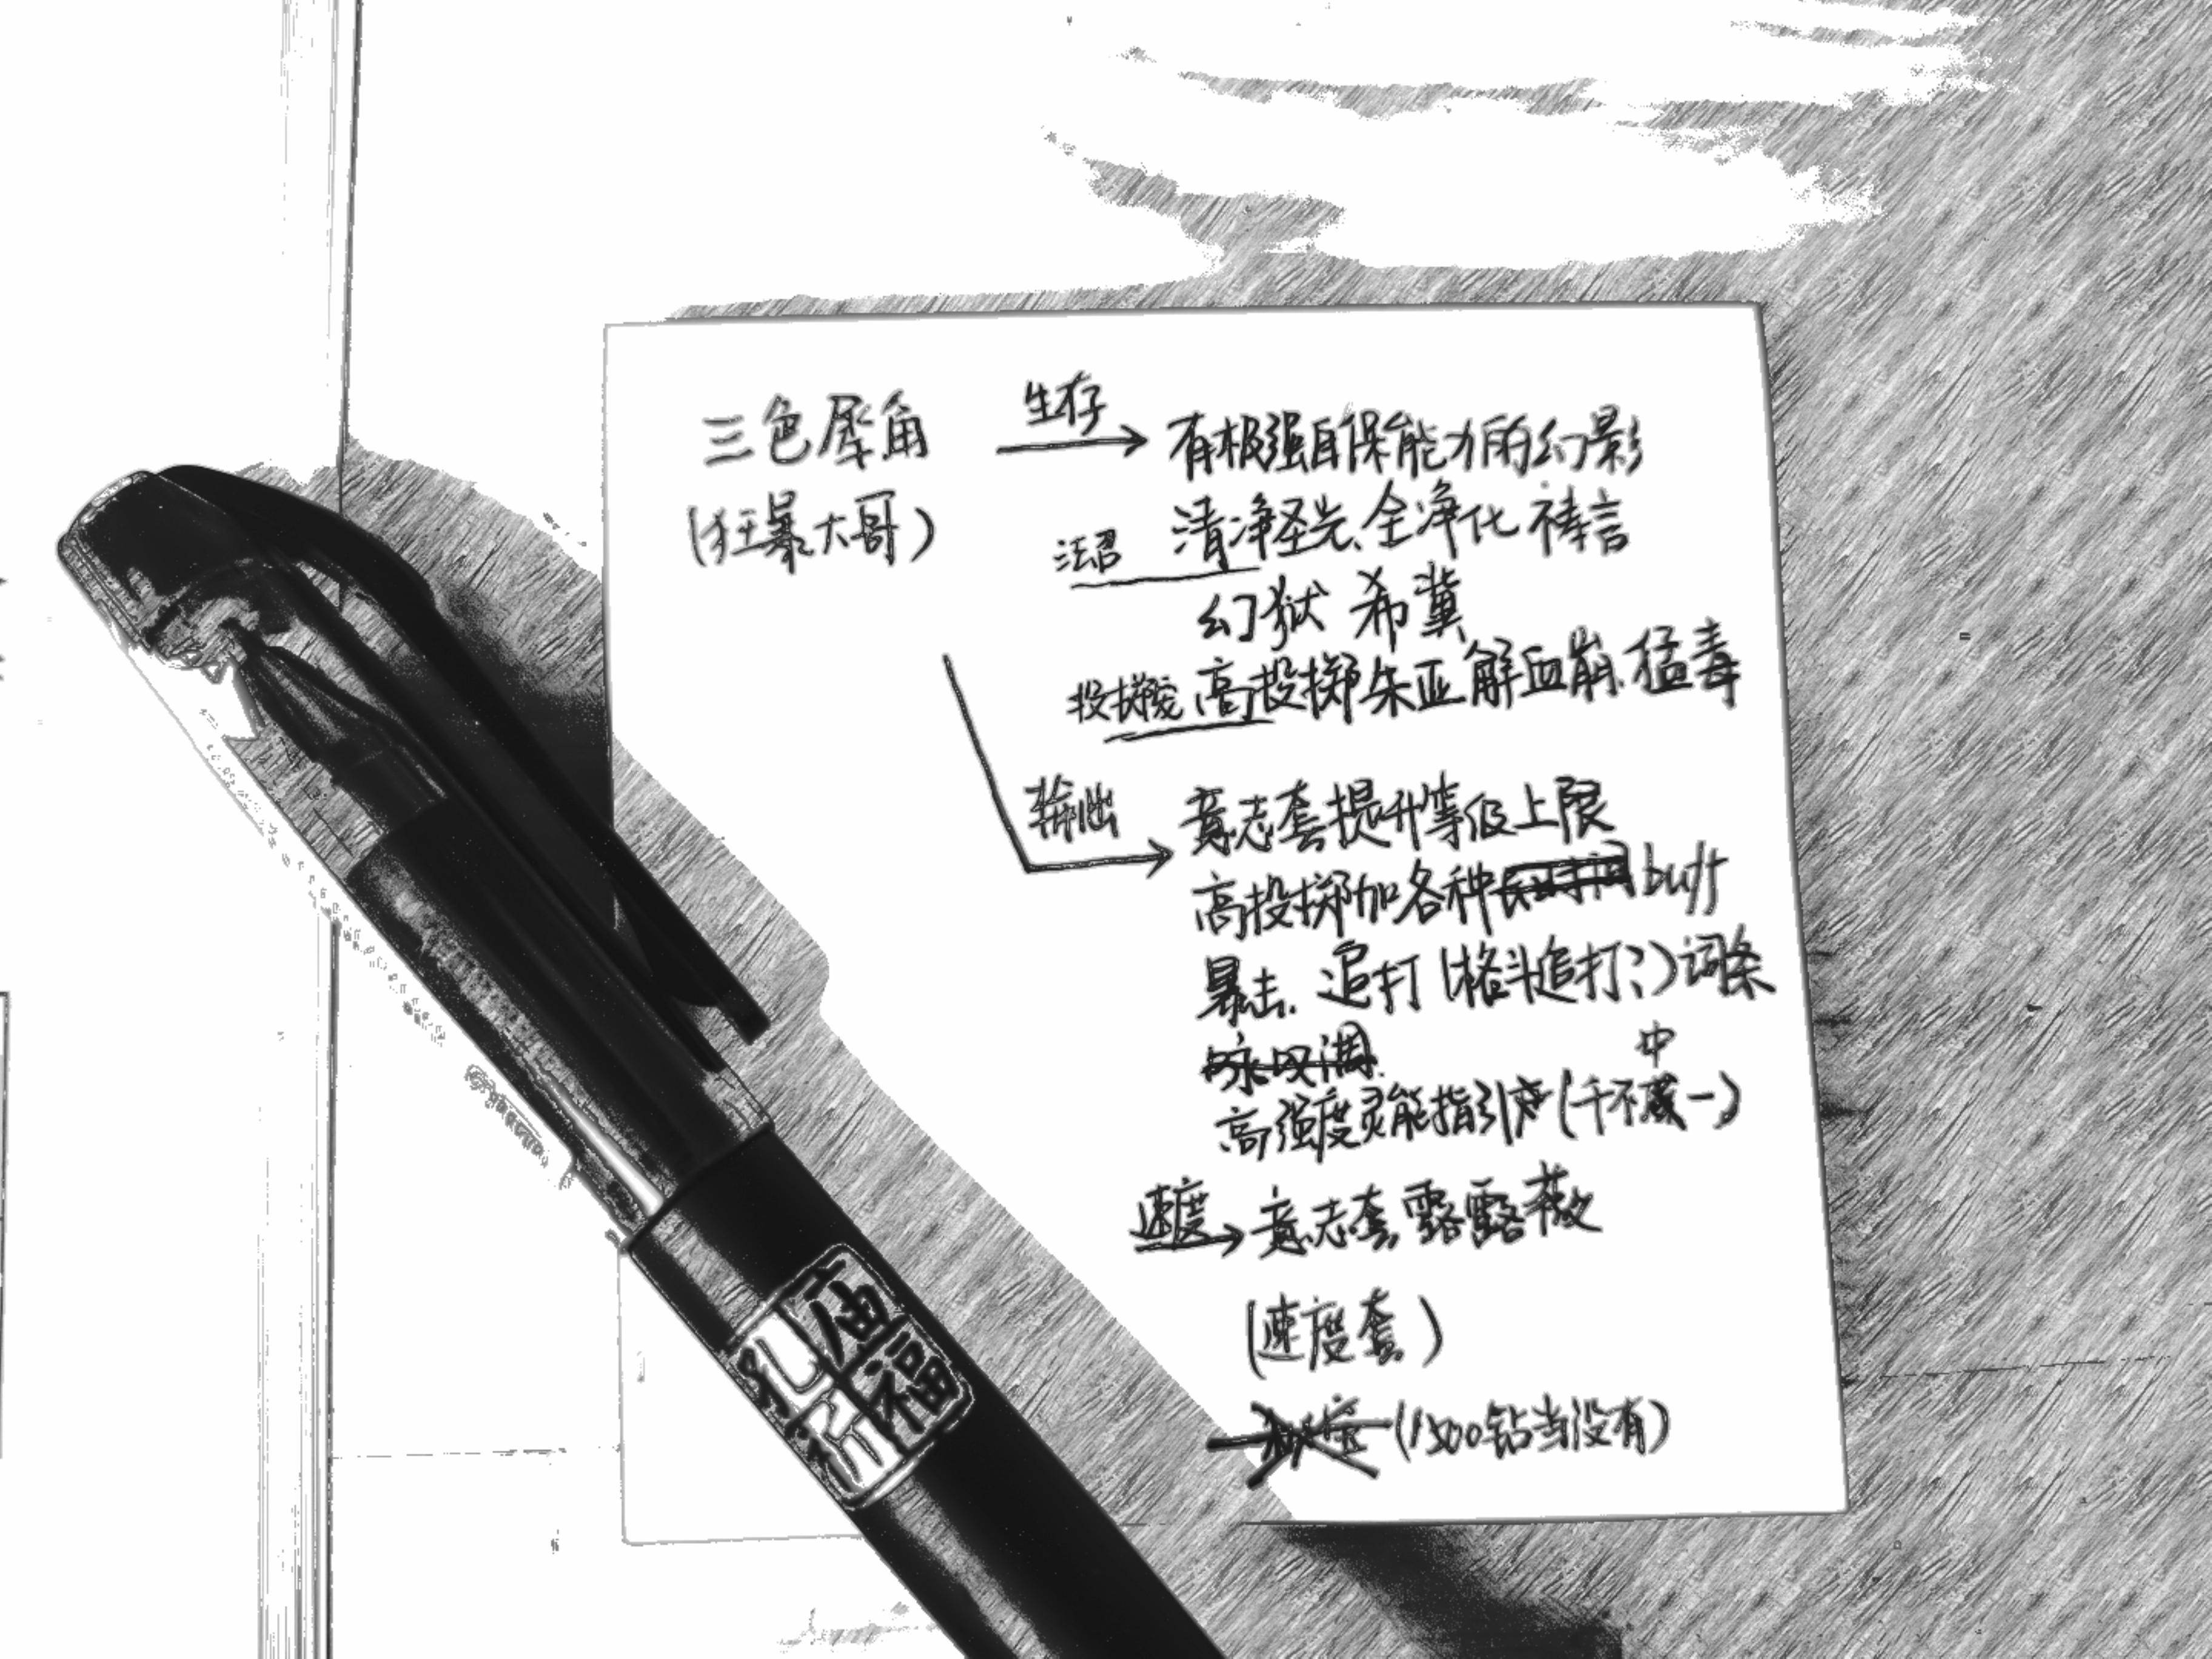 三色犀角
(狂暴大哥)
生存
有极强自保能力的幻影
清净圣光、全净化 祷言
法召
幻狱 希冀
投掷流 高投掷朱亚解血崩、猛毒
输出
意志套提升等级上限
高投掷加各种 buff
暴击、追打(格斗追打?)词条
咏叹调
中
高强度灵能指引(千不一)
速度
意志套 露露薇
(速度套)
(1500钻当没有)
福